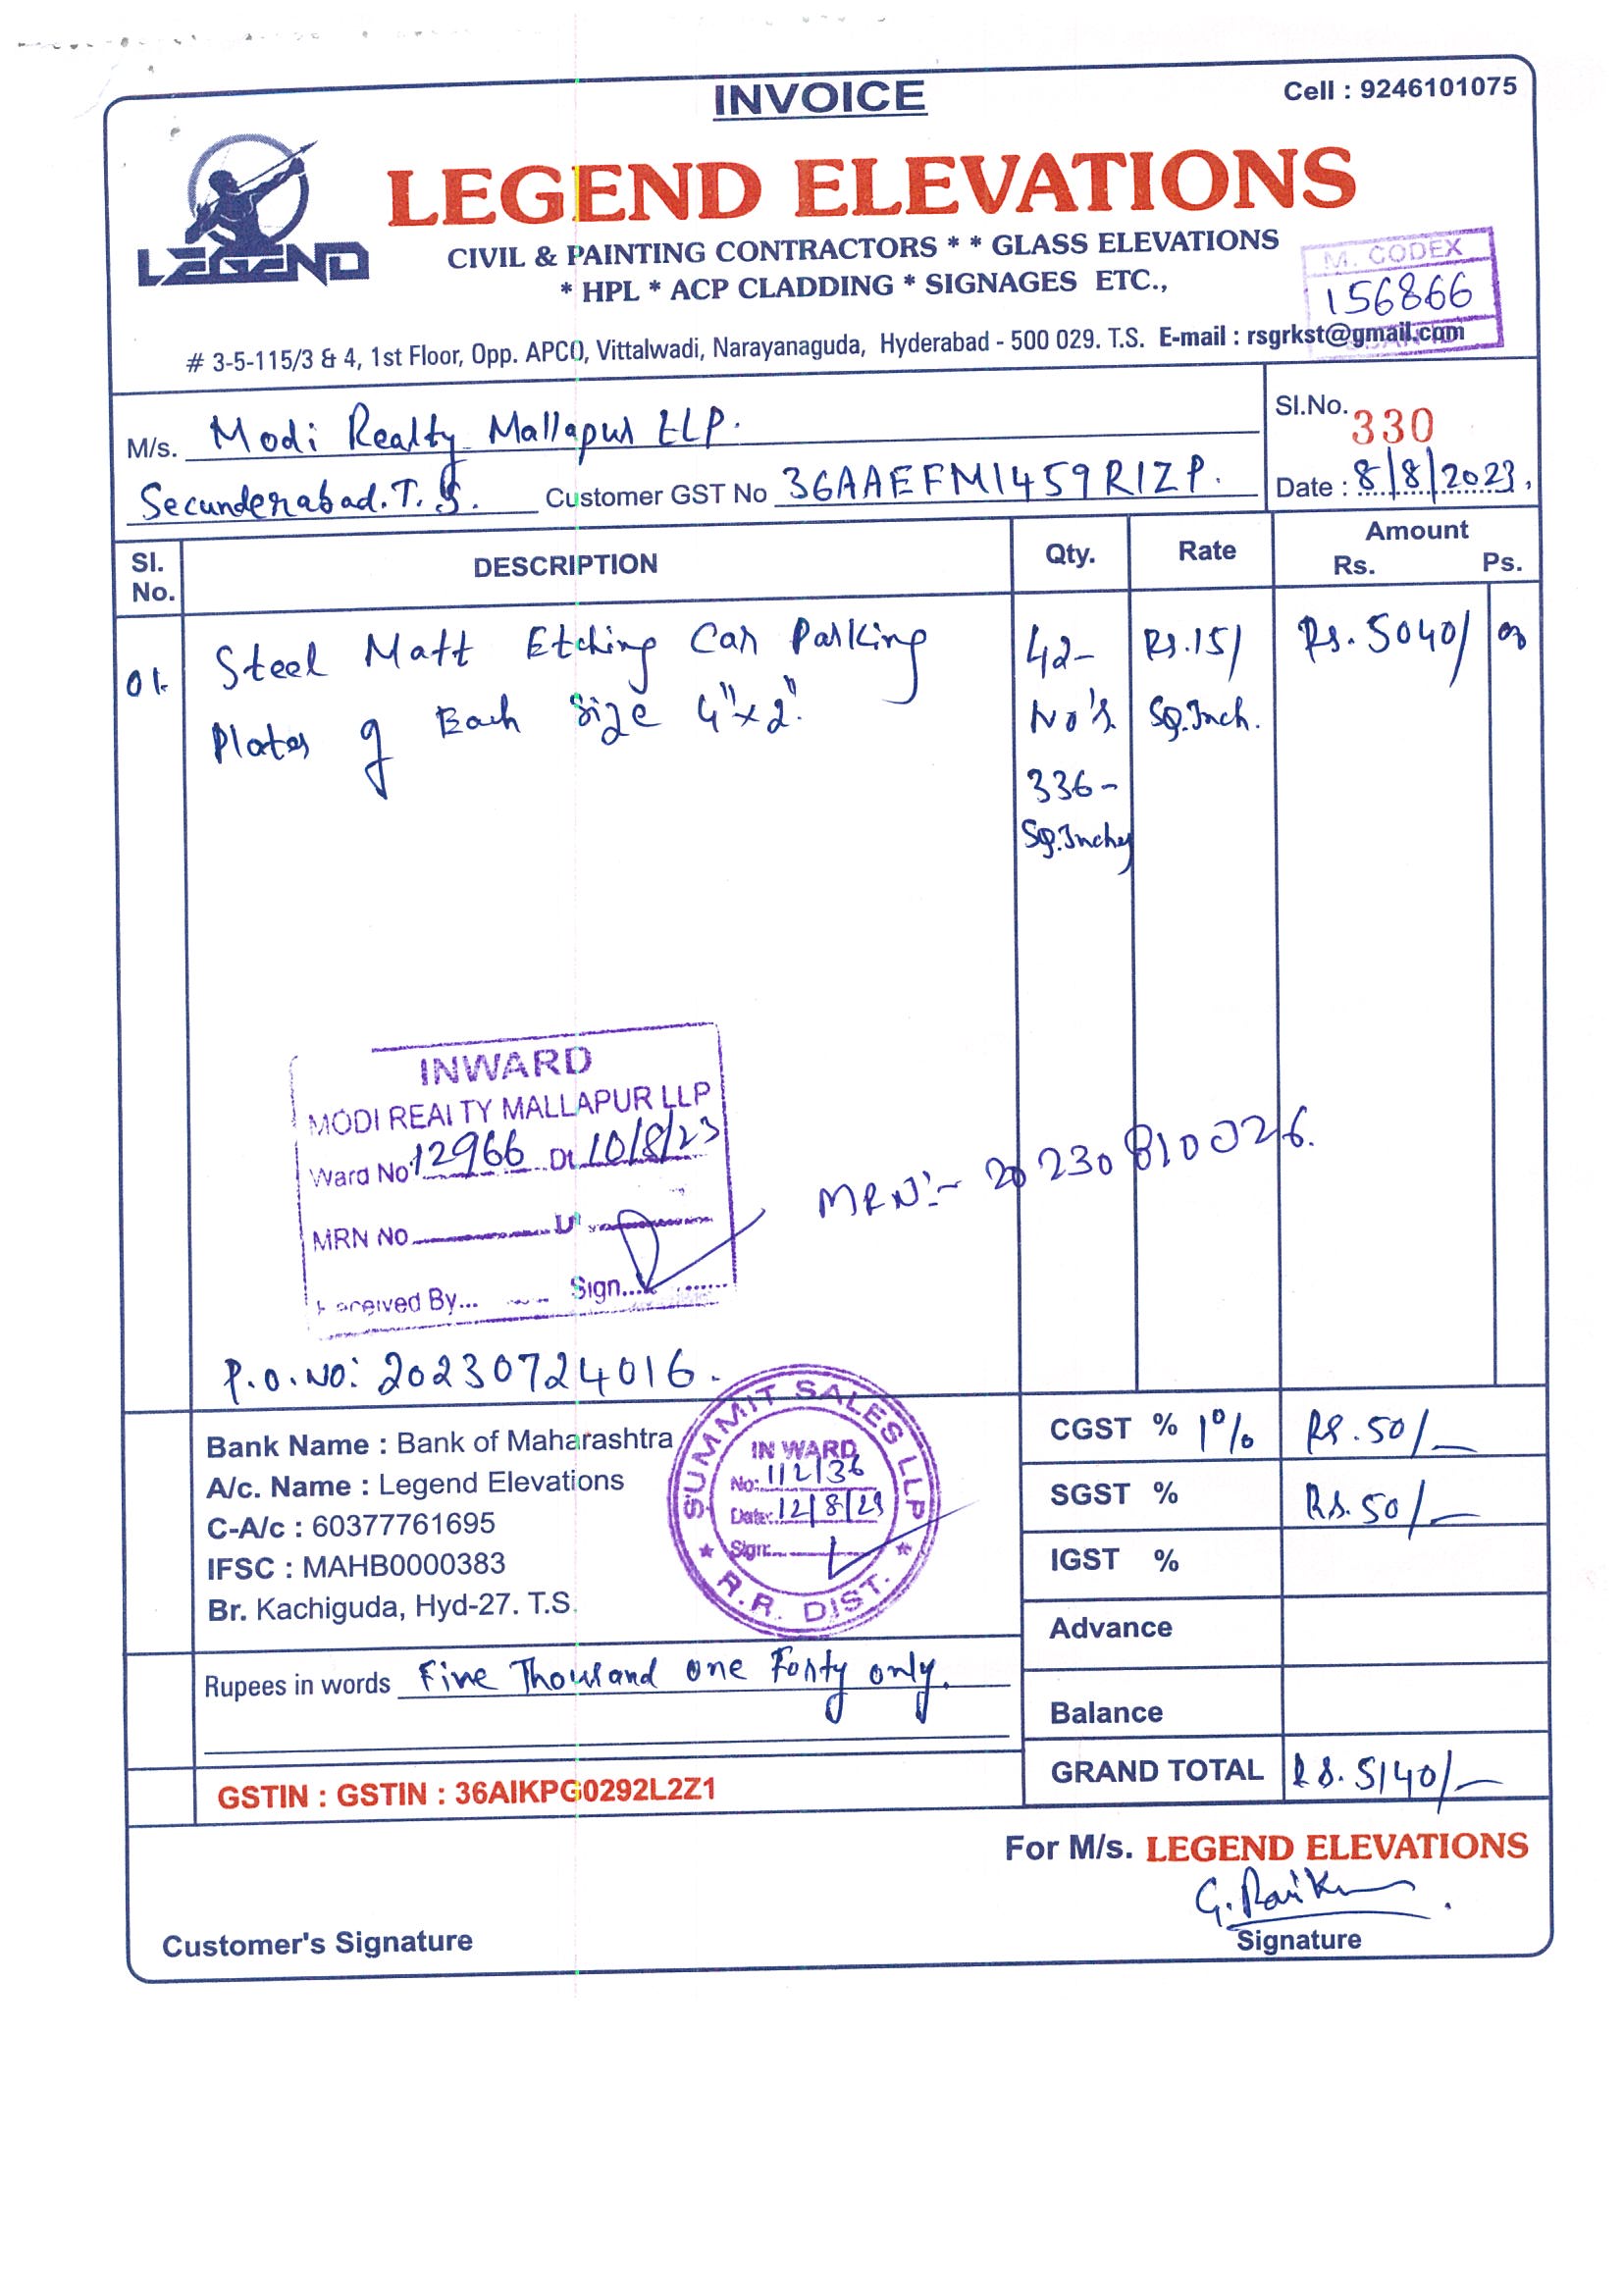 INVOICE
Cell : 9246101075
LEGEND
LEGEND ELEVATIONS
CIVIL & PAINTING CONTRACTORS * * GLASS ELEVATIONS
* HPL * ACP CLADDING * SIGNAGES ETC.,
M. CODEX
156866
# 3-5-115/3 & 4, 1st Floor, Opp. APCO, Vittalwadi, Narayanaguda, Hyderabad - 500 029. T.S. E-mail : rsgrkst@gmail.com
M/s. Modi Realty Mallapur LLP.
Sl.No. 330
Secunderabad. T.S. Customer GST No 36AAEFM1459R1ZP.
Date : 8/8/2023.
Sl. No. DESCRIPTION Qty. Rate Amount Rs. Ps.
01. Steel Matt Etching Car Parking 42- Rs.15/ Rs. 5040/ 00
Plates of Each Size 4"x2". No's. Sq.Inch.
336-
Sq.Inches
INWARD
MODI REALTY MALLAPUR LLP
Ward No 12966 Dt 10/8/23
MRN NO
Received By... Sign....
MRN:- 20230810026.
P.O. NO: 20230724016.
Bank Name : Bank of Maharashtra
A/c. Name : Legend Elevations
C-A/c : 60377761695
IFSC : MAHB0000383
Br. Kachiguda, Hyd-27. T.S.
SUMMIT SALES LLP
IN WARD
No: 112136
Date: 12/8/23
Sign:
* R.R. DIST. *
CGST % 1% Rs.50/-
SGST % Rs.50/-
IGST %
Advance
Balance
Rupees in words Five Thousand one Forty only.
GRAND TOTAL Rs. 5140/-
GSTIN : GSTIN : 36AIKPG0292L2Z1
For M/s. LEGEND ELEVATIONS
Customer's Signature
Signature